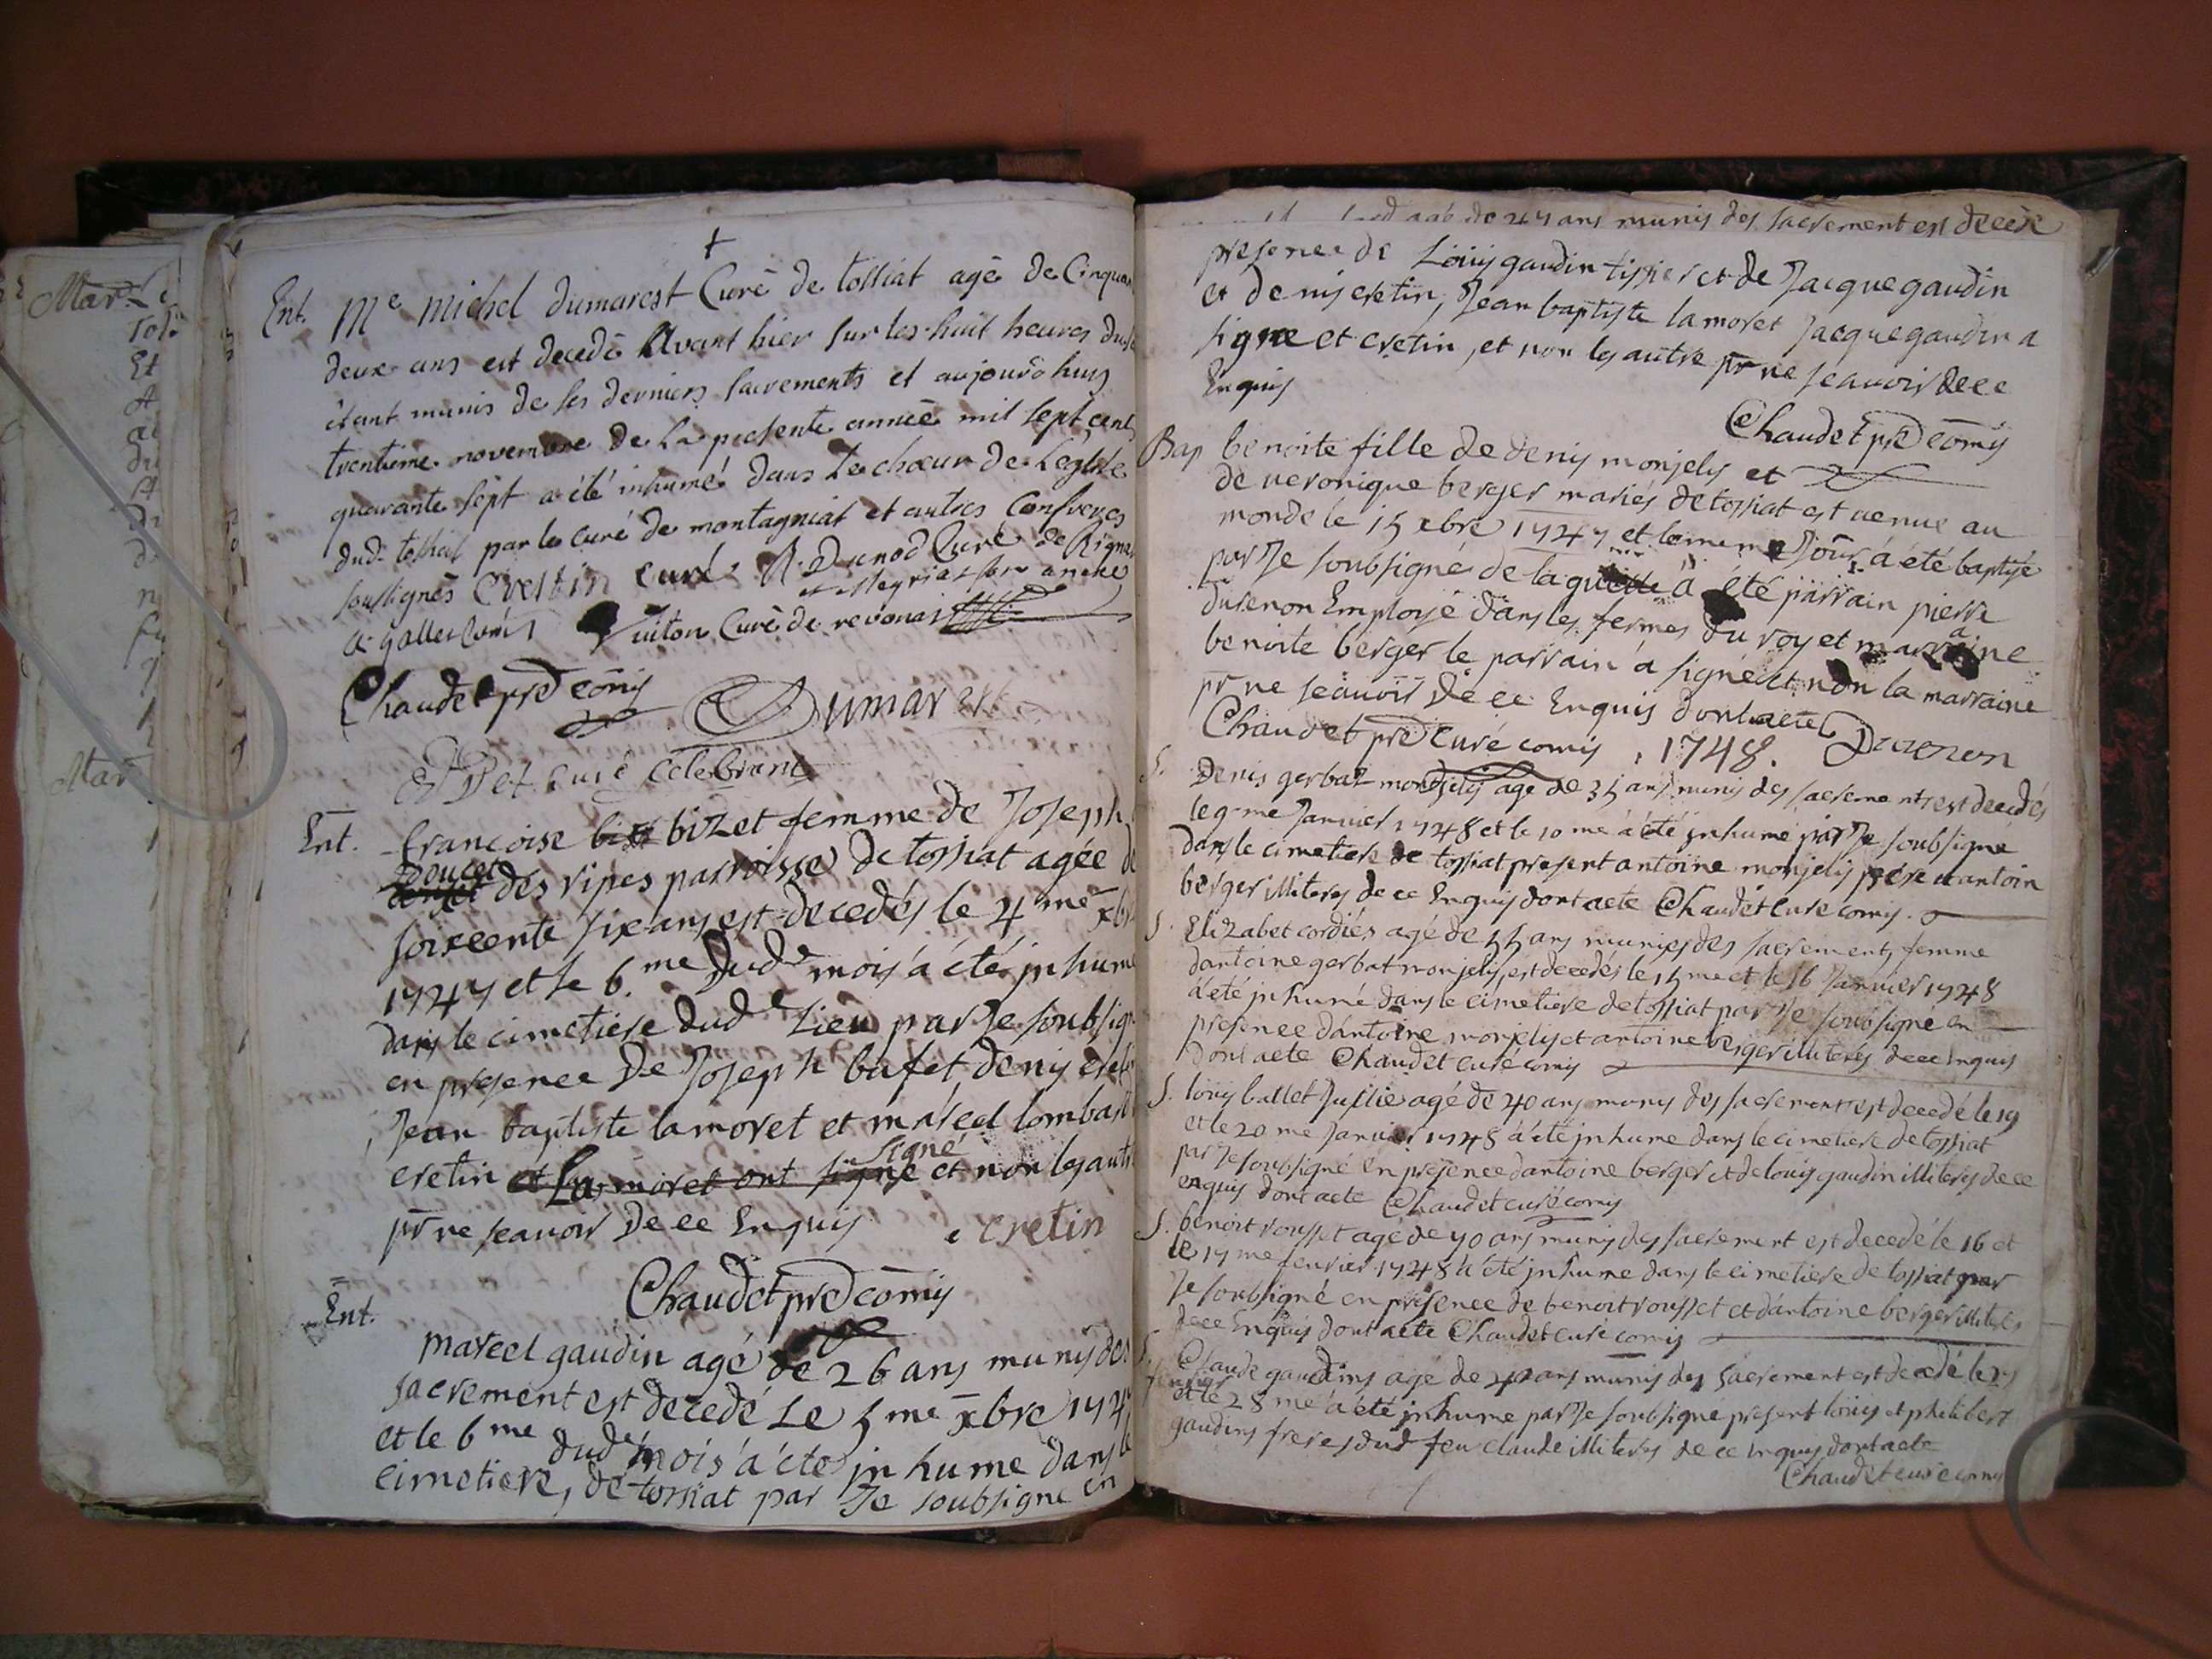 Mar
Toss
Et
Mar
†
Ent. Me Michel Dumarest Curé de tossiat agé de Cinqua
deux ans est decedé Avant hier sur les huit heures du
étant munis de ses derniers sacrements et aujourd'huy
trentieme novembre de la presente année mil sept cent
quarante sept a été inhumé dans le chœur de Leglise
dud. tossiat par le curé de montagniat et autres Confreres
soussignés Cretin curé R. Dunod Curé de Rigna
et Meyriat son annexe
Guiton Curé de revonas
Chaudet pre comis Dumarest
curé celebrant
Ent. francoise bizet femme de Joseph
Doucet des ripes parroisse de tossiat agée de
soixcente six ans est decedés le 4 me xbre
1747 et le 6. me dud mois a été inhume
dans le cimetiere dud Lieu par Je soubsign
en presence De Joseph bufet, denis creti
Jean baptiste lamoret et marcel lombard
cretin et Lamoret ont signé signé et non les autr
pr ne scavoir De ce Enquis cretin
Chaudet pre comis
Ent.
marcel gaudin agé de 26 ans munis des
sacrement est decedé Le 5 me xbre 1747
et le 6 me dud mois a été inhume dans le
cimetiere, de tossiat par Je soubsigne en
agé de 27 ans munis des sacrement est decede
presence de Louis gaudin tissier et de Jacque gaudin
et denis cretin, Jean baptiste lamoret Jacque gaudin a
signe et cretin, et non les autre pr ne scavoir de ce
Enquis
Chaudet pre comis
Bap benoite fille de denis monjelis et
de ueronique berger mariés de tossiat est uenue au
monde le 15 xbre 1747 et le meme Jour a été baptisé
par Je soubsigné de laquelle a été parrain pierre
Duenon Employé dans les fermes du roy et marraine
benoite berger le parrain a signé et non la marraine
pr ne scauoir de ce Enquis dont acte
Chaudet pre curé comis , 1748. Duenon
S. Denis gerbaz montjelis age de 35 ans munis des sacrements est decedés
le 9 me Januier 1748 et le 10 me a été inhumé par Je soubsigné
dans le cimetiere de tossiat present antoine monjelis pere et antoin
berger illiterés de ce Enquis dont acte Chaudet cure comis.
S. Elizabet cordier agé de 55 ans munies des sacrements femme
dantoine gerbat monjelis, est decedés le 15 me et le 16 Januier 1748
a été inhumé dans le cimetiere de tossiat par Je soubsigné en
presence dantoine monjelis et antoine berger illiterés de ce enquis
dont acte Chaudet curé comis
S. louis ballet Juilie agé de 40 ans munis des sacrement est decedé le 19
et le 20 me Januier 1748 a été inhume dans le cimetiere de tossiat
par Je soubsigné en presence dantoine berger et de louis gaudin illiterés de ce
enquis dont acte Chaudet curé comis
S. benoit rousset agé de 70 ans munis des sacrement est decedé le 16 et
le 17 me feurier 1748 a été inhume dans le cimetiere de tossiat par
Je soubsigné en presence de benoit rousset et dantoine berger illiterés
de ce Enquis dont acte Chaudet curé comis
S. Claude gaudins agé de 40 ans munis des sacrement est decedé le 27
et le 28 me a été inhume par Je soubsigné present louis et philibert
gaudins freres dud feu claude illiterés de ce enquis dont acte
Chaudet cure comis